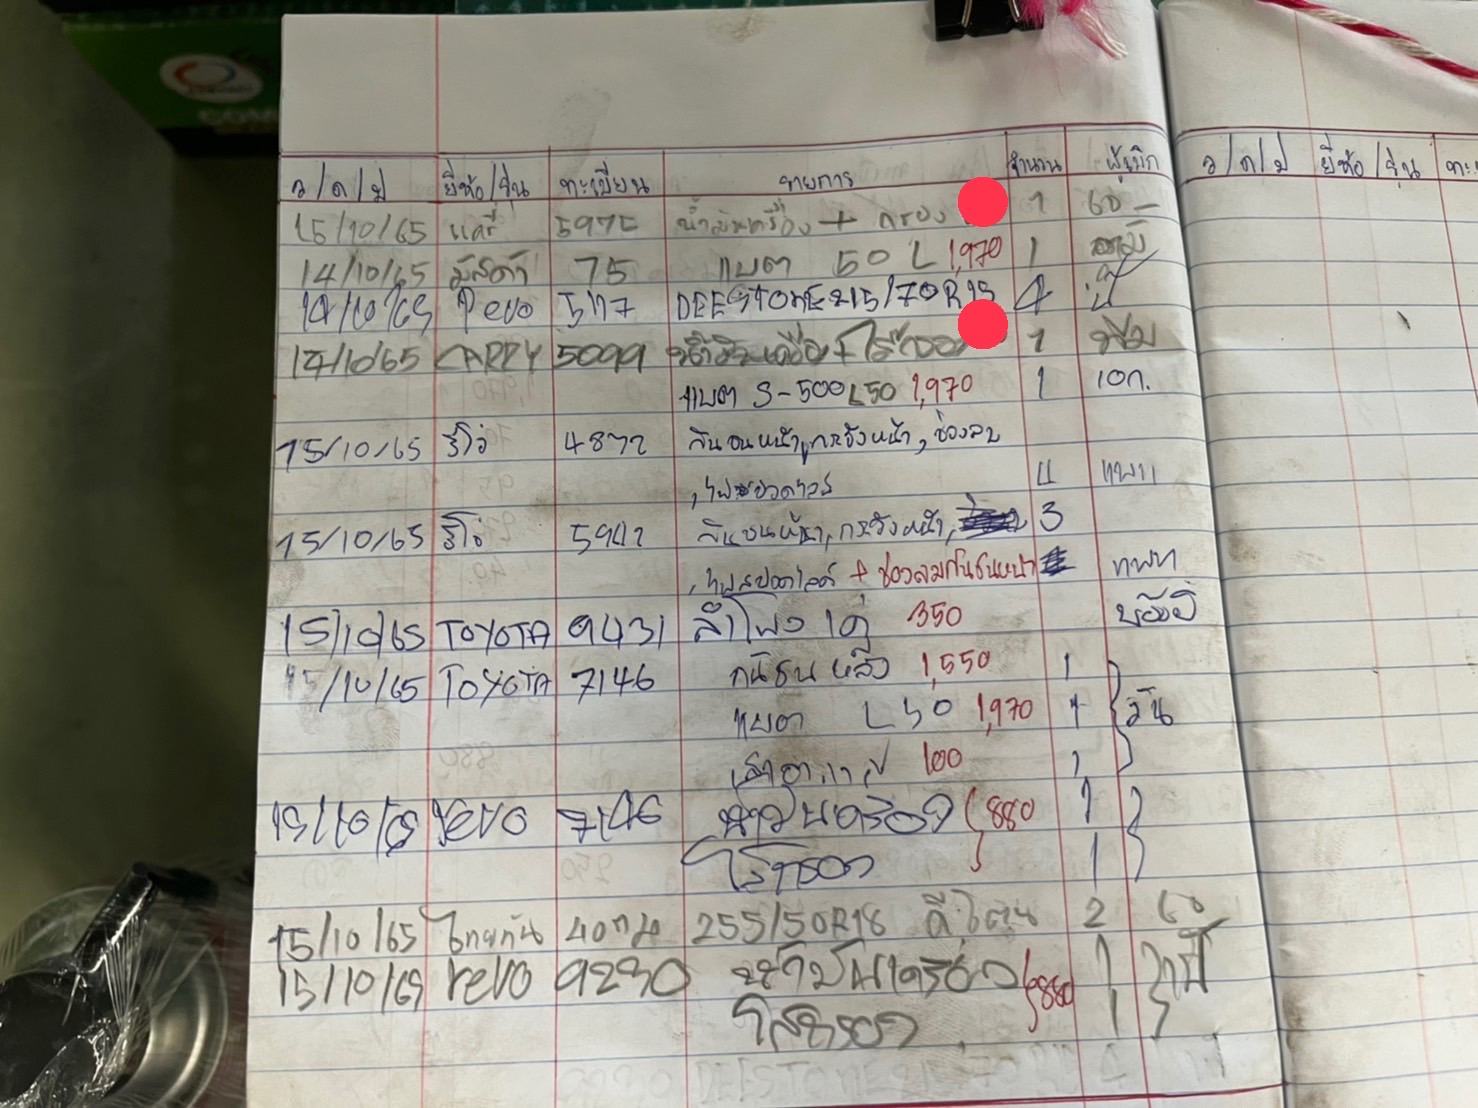 ว/ด/ป ยี่ห้อ/รุ่น ทะเบียน รายการ จำนวน ผู้เบิก
15/10/65 แครี่ 5975 น้ำมันเครื่อง + กรอง 1
14/10/65 มัสด้า 75 แบต 50 L 1,970 1
14/10/65 Revo 517 DEESTONE 215/70R15 4
14/10/65 CARRY 5099 1
แบต S-500 L50 1,970 1 เอก.
15/10/65 รีโว่ 4872 กันชนหน้า, กระจังหน้า, ช่องลม
4
15/10/65 รีโว่ กันชนหน้า, กระจังหน้า, 3
, ไฟสปอตไลต์ + ช่องลมกันชนหน้า
15/10/65 TOYOTA 9431 ลำโพง 1 คู่ 350
15/10/65 TOYOTA 7146 กันชนหลัง 1,550 1
แบต L50 1,970 1 วัน
เสาอากาศ 100 1
15/10/65 revo 7146 น้ำมันเครื่อง 880 1
ไส้กรอง 1
15/10/65 ไทยทัน 255/50R18 ดีสโตน 2
15/10/65 revo 9230 น้ำมันเครื่อง 880 1
ไส้กรอง 1
ว/ด/ป ยี่ห้อ/รุ่น